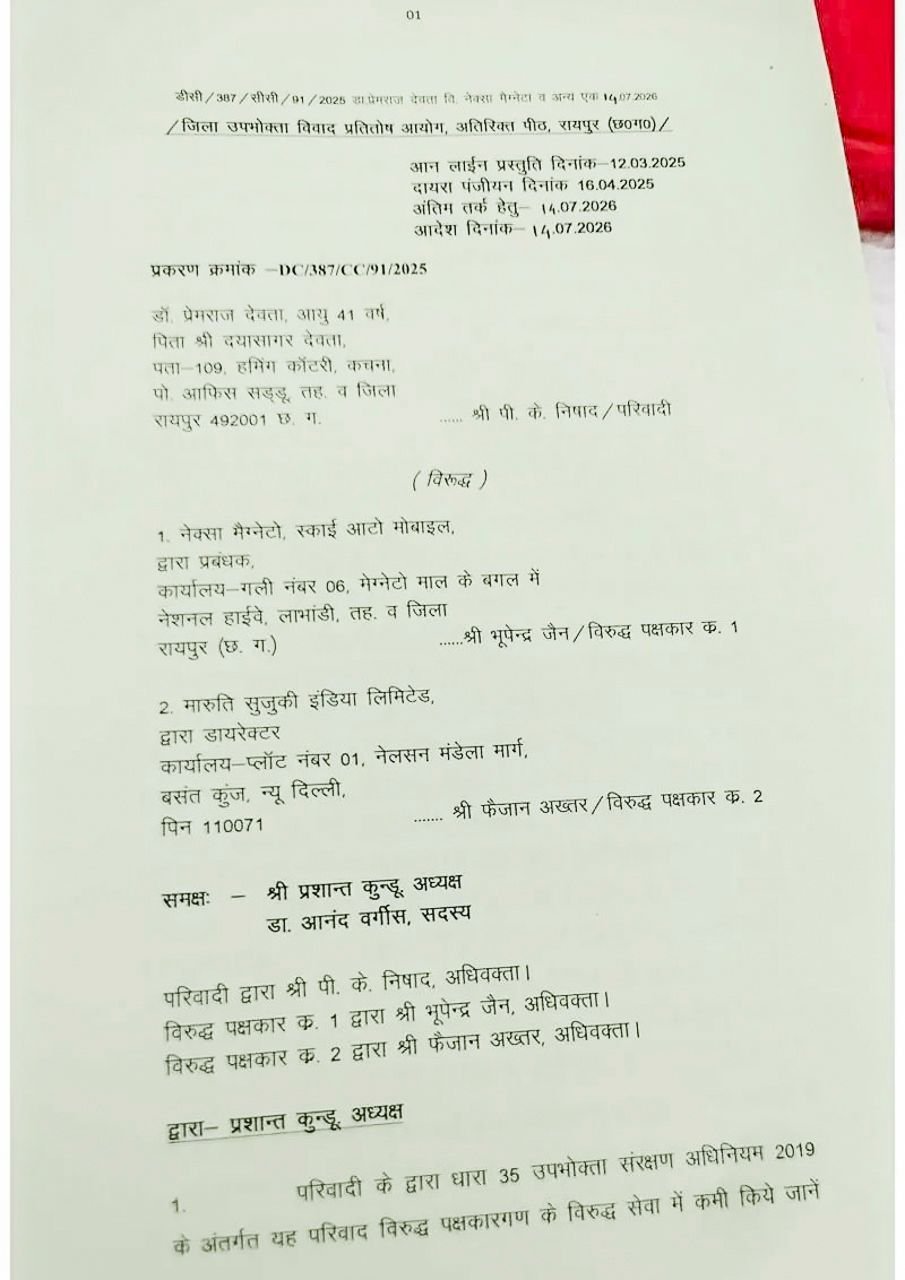 01
डीसी/387/सीसी/91/2025 डा.प्रेमराज देवता वि. नेक्सा मैग्नेटा व अन्य एक 14.07.2026
/जिला उपभोक्ता विवाद प्रतितोष आयोग, अतिरिक्त पीठ, रायपुर (छ0ग0)/
आन लाईन प्रस्तुति दिनांक–12.03.2025
दायरा पंजीयन दिनांक 16.04.2025
अंतिम तर्क हेतु– 14.07.2026
आदेश दिनांक– 14.07.2026
प्रकरण क्रमांक –DC/387/CC/91/2025
डॉ. प्रेमराज देवता, आयु 41 वर्ष,
पिता श्री दयासागर देवता,
पता–109, हमिंग कॉटरी, कचना,
पो. आफिस सड्डू, तह. व जिला
रायपुर 492001 छ. ग. ...... श्री पी. के. निषाद/परिवादी
( विरूद्ध )
1. नेक्सा मैग्नेटो, स्काई आटो मोबाइल,
द्वारा प्रबंधक,
कार्यालय–गली नंबर 06, मेग्नेटो माल के बगल में
नेशनल हाईवे, लाभांडी, तह. व जिला
रायपुर (छ. ग.) ......श्री भूपेन्द्र जैन/विरुद्ध पक्षकार क्र. 1
2. मारुति सुजुकी इंडिया लिमिटेड,
द्वारा डायरेक्टर
कार्यालय–प्लॉट नंबर 01, नेलसन मंडेला मार्ग,
बसंत कुंज, न्यू दिल्ली,
पिन 110071 ....... श्री फैजान अख्तर/विरुद्ध पक्षकार क्र. 2
समक्षः – श्री प्रशान्त कुन्डू, अध्यक्ष
डा. आनंद वर्गीस, सदस्य
परिवादी द्वारा श्री पी. के. निषाद, अधिवक्ता।
विरुद्ध पक्षकार क्र. 1 द्वारा श्री भूपेन्द्र जैन, अधिवक्ता।
विरुद्ध पक्षकार क्र. 2 द्वारा श्री फैजान अख्तर, अधिवक्ता।
द्वारा– प्रशान्त कुन्डू, अध्यक्ष
1. परिवादी के द्वारा धारा 35 उपभोक्ता संरक्षण अधिनियम 2019
के अंतर्गत यह परिवाद विरुद्ध पक्षकारगण के विरुद्ध सेवा में कमी किये जानें